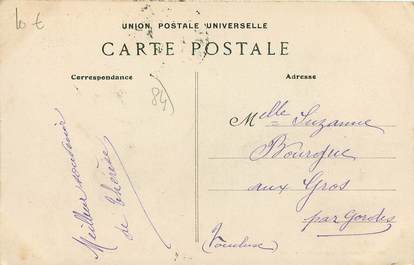 10 €
UNION POSTALE UNIVERSELLE
CARTE POSTALE
Correspondance
Adresse
84
Meilleur souvenir
de Thérèse
Melle Suzanne
Bourgue
aux Gros
par Gordes
(Vaucluse)